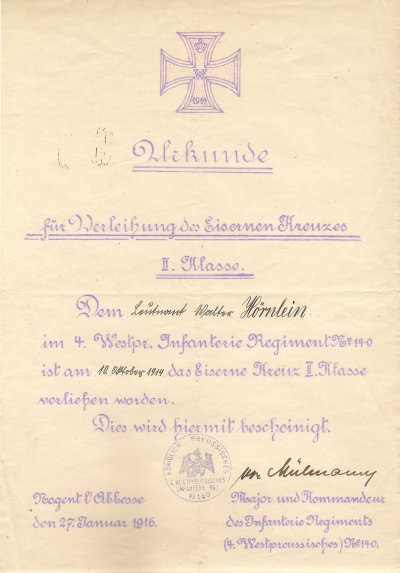 W
1914
Urkunde
für Verleihung des Eisernen Kreuzes
II. Klasse.
Dem Leutnant Walter Hörnlein
im 4. Westpr. Infanterie Regiment No 140
ist am 10. Oktober 1914 das Eiserne Kreuz II. Klasse
verliehen worden.
Dies wird hiermit bescheinigt.
KÖNIGLICH PREUSSISCHES
4. WESTPREUSSISCHES
INFANTERIE-REGT.
No 140
von Mülmann
Nogent l'Abbesse
den 27. Januar 1916.
Major und Kommandeur
des Infanterie Regiments
(4. Westpreussisches) No 140.